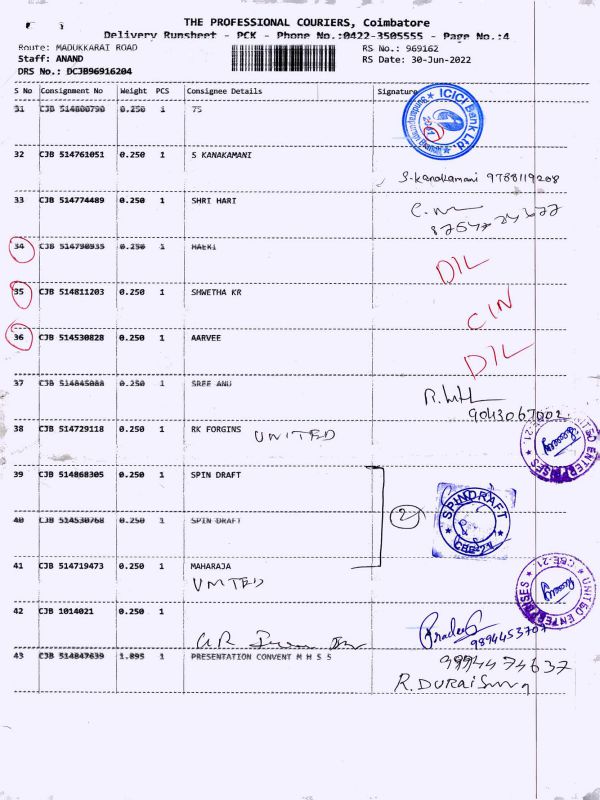 THE PROFESSIONAL COURIERS, Coimbatore
Delivery Runsheet - PCK - Phone No.:0422-3505555 - Page No.:4
Route: MADUKKARAI ROAD RS No.: 969162
Staff: ANAND RS Date: 30-Jun-2022
DRS No.: DCJB96916204
S No Consignment No Weight PCS Consignee Details Signature
31 CJB 0.250 1 75
ICICI Bank Ltd.
32 CJB 514761051 0.250 1 S KANAKAMANI
S.kanakamani 9788119208
33 CJB 514774489 0.250 1 SHRI HARI
34 CJB 514790935 0.250 1
DIL
35 CJB 514811203 0.250 1 SHWETHA KR
CIN
36 CJB 514530828 0.250 1 AARVEE
DIL
37 CJB 514845088 0.250 1 SREE ANU
9043067002
38 CJB 514729118 0.250 1 RK FORGINS UNITED
UNITED ENTERPRISES CBE-21.
39 CJB 514868305 0.250 1 SPIN DRAFT
2
SPINDRAFT
CBE-21
40 CJB 514530768 0.250 1 SPIN DRAFT
41 CJB 514719473 0.250 1 MAHARAJA
UNITED
UNITED ENTERPRISES CBE-21.
42 CJB 1014021 0.250 1
Pradeep
9894453707
43 CJB 514847639 1.895 1 PRESENTATION CONVENT M H S S
9994474637